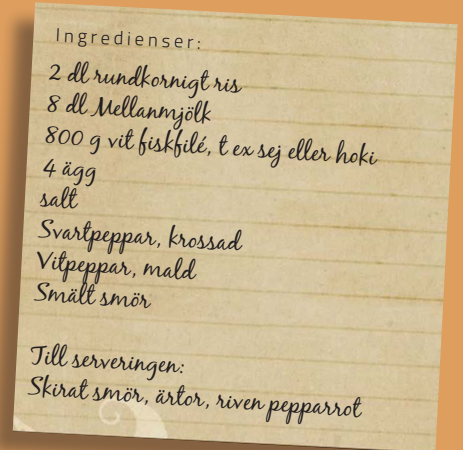 Ingredienser:
2 dl rundkornigt ris
8 dl Mellanmjölk
800 g vit fiskfilé, t ex sej eller hoki
4 ägg
salt
Svartpeppar, krossad
Vitpeppar, mald
Smält smör
Till serveringen:
Skirat smör, ärtor, riven pepparrot